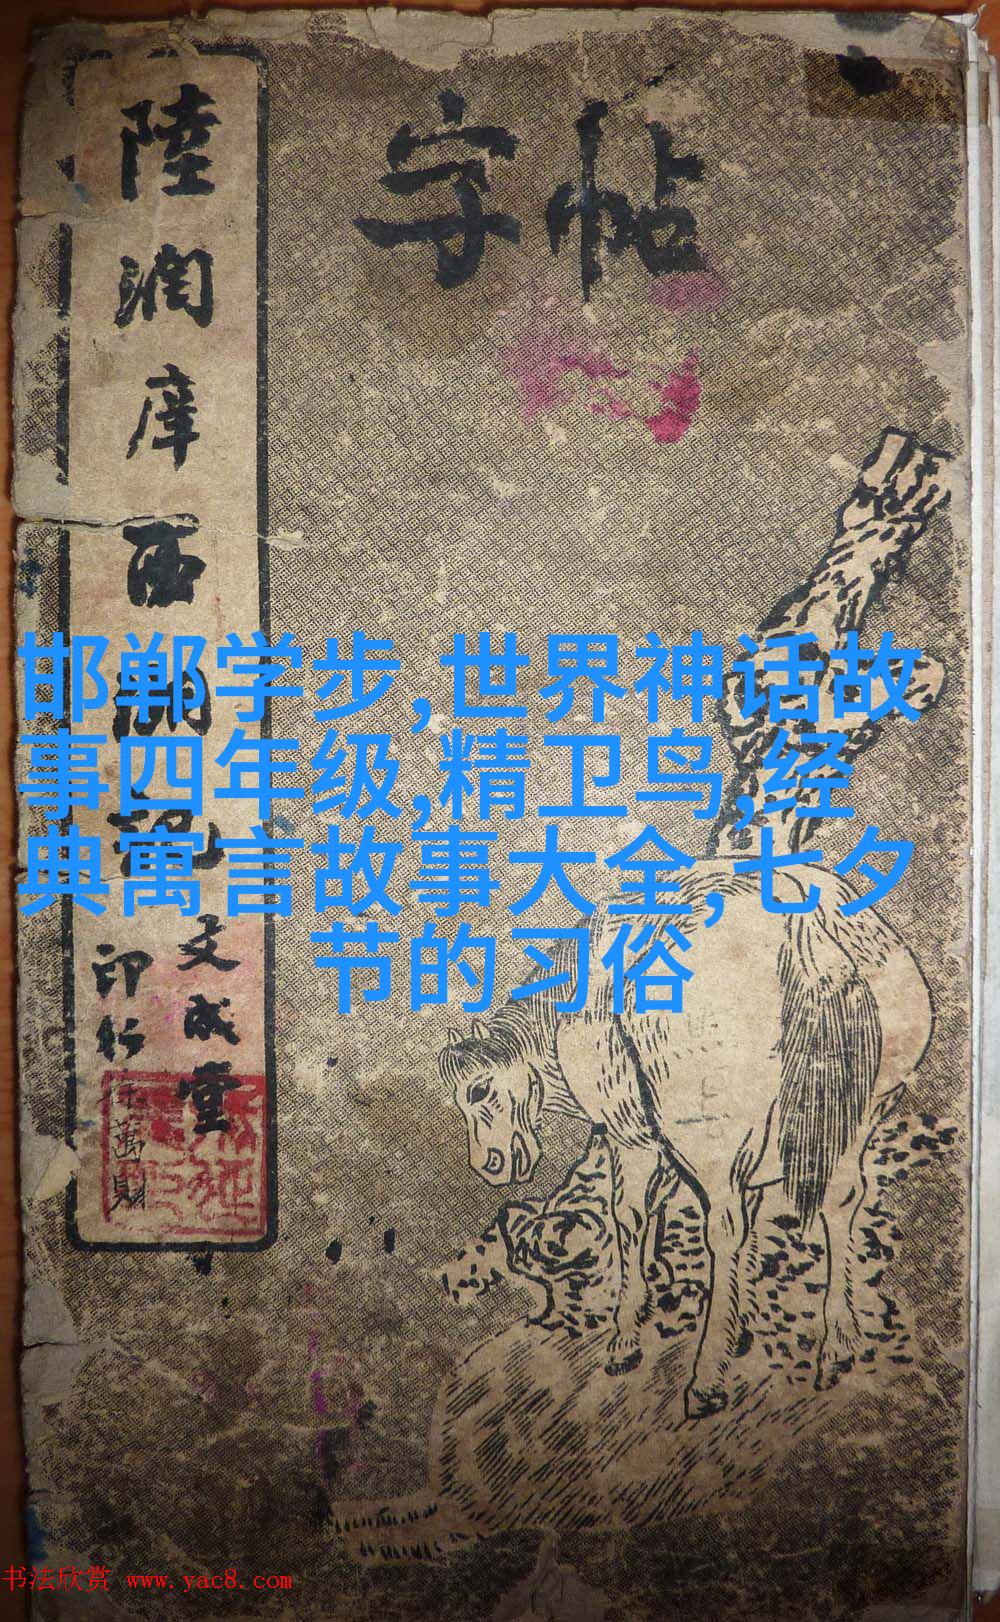 字帖
陸潤庠西湖記
文成堂
印行
徐萬財
邯郸学步,世界神话故
事四年级,精卫鸟,经
典寓言故事大全,七夕
节的习俗
书法欣赏 www.yac8.com